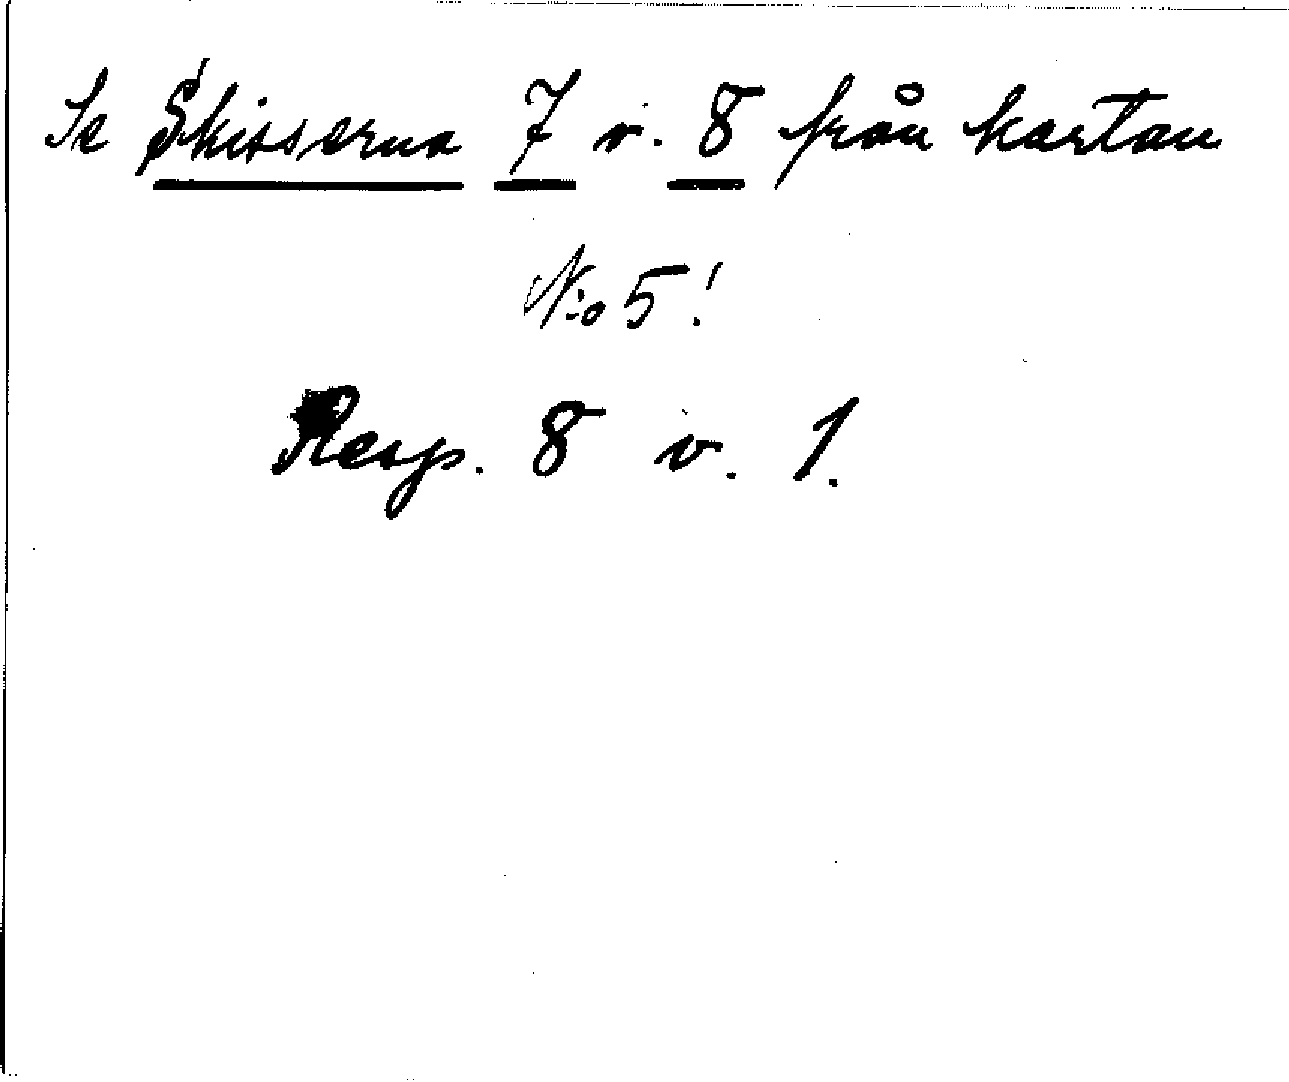 Se Skisserna 7 v. 8 från kartan
N:o 5!
Resp. 8 v. 1.